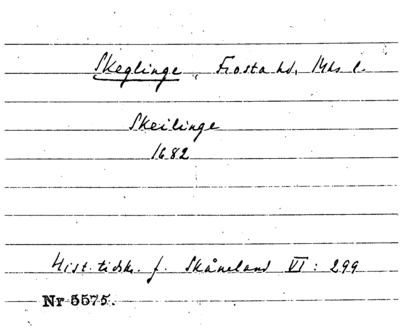 Skeglinge, Frosta hd, Mhs l.
Skeilinge
1682
Hist. tidskr. f. Skåneland VI : 299
Nr 5575.